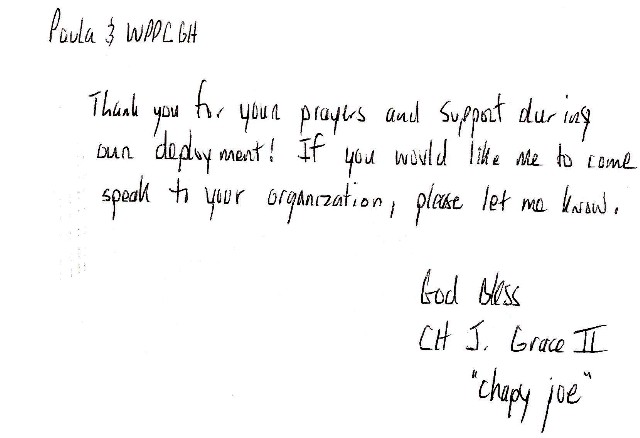 Paula & WPPCGH
Thank you for your prayers and support during
our deployment! If you would like me to come
speak to your organization, please let me know.
God Bless
CH J. Grace II
"chapy joe"